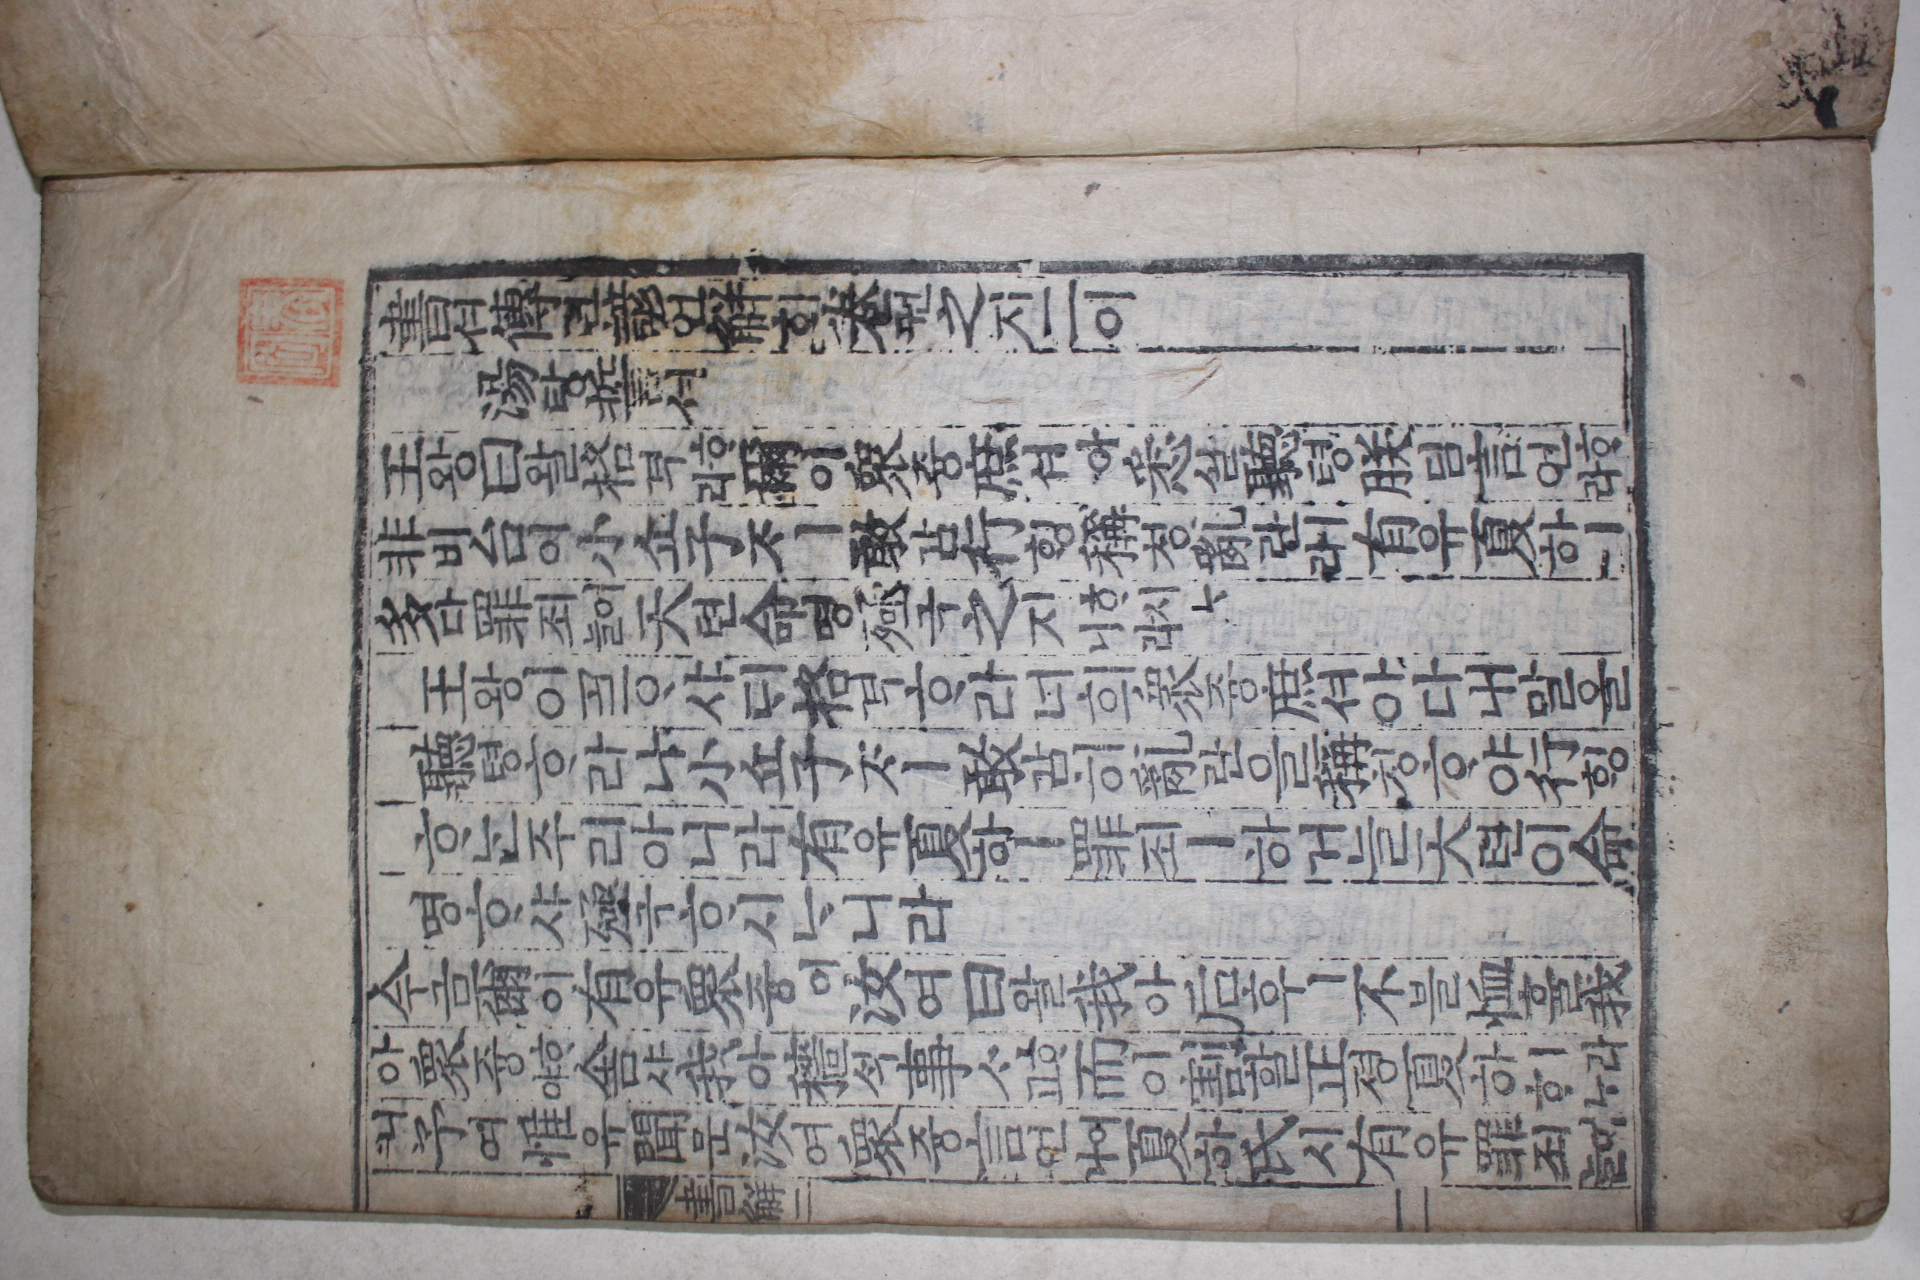 書셔傳뎐諺언解ᄒᆡ卷권之지二이
湯탕誓셔
王왕曰왈格격ᄒᆞ라爾이衆즁庶셔아悉실聽텽朕딤言언ᄒᆞ라
非비台이小쇼子ᄌᆞㅣ敢감行ᄒᆡᆼ稱칭亂란이라有유夏하ㅣ
多다罪죄어늘天텬命명殛극之지ᄒᆞ시ᄂᆞ니라
王왕이ᄀᆞᆯᄋᆞ샤ᄃᆡ格격ᄒᆞ라너희衆즁庶셔아다내말올
聽텽ᄒᆞ라나小쇼子ᄌᆞㅣ敢감히亂란을稱칭ᄒᆞ야行ᄒᆡᆼ
ᄒᆞᄂᆞᆫ주리아니라有유夏하ㅣ罪죄ㅣ하거늘天텬이命
명ᄒᆞ샤殛극ᄒᆞ시ᄂᆞ니라
今금爾이有유衆즁이汝여曰왈我아后후ㅣ不블恤휼我
아衆즁ᄒᆞ야舍샤我아穡ᄉᆡᆨ事ᄉᆞᄒᆞ고而이割할正졍夏하ㅣ라ᄒᆞᄂᆞ
니予여惟유聞문汝여衆즁言언이나夏하氏시有유罪죄어늘
書解二
一